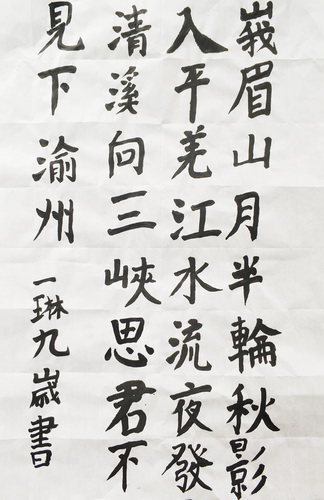 峩眉山月半輪秋影
入平羌江水流夜發
清溪向三峽思君不
見下渝州
一琳九歲書